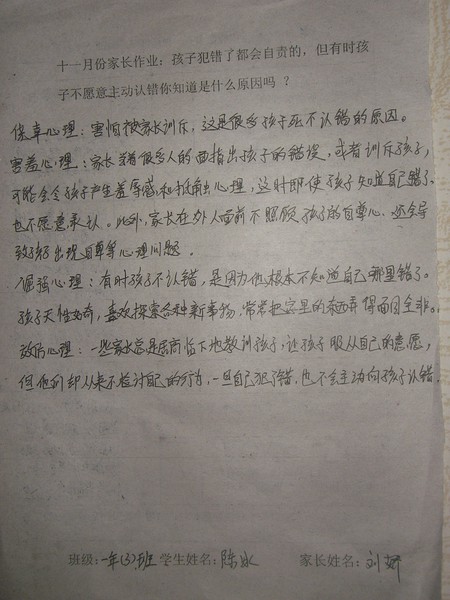 十一月份家长作业：孩子犯错了都会自责的，但有时孩
子不愿意主动认错你知道是什么原因吗？
侥幸心理：害怕被家长训斥，这是很多孩子死不认错的原因。
害羞心理：家长当着很多人的面指出孩子的错误，或者训斥孩子，
可能会令孩子产生羞辱感和抵触心理，这时即使孩子知道自己错了，
也不愿意承认。此外，家长在外人面前不照顾孩子的自尊心，还会导
致孩子出现自卑等心理问题。
倔强心理：有时孩子不认错，是因为他根本不知道自己哪里错了。
孩子天性好奇，喜欢探索各种新事物，常常把家里的东西弄得面目全非。
效仿心理：一些家长总是居高临下地教训孩子，让孩子服从自己的意愿，
但他们却从来不检讨自己的行为，一旦自己犯了错，也不会主动向孩子认错。
班级：一年（3）班 学生姓名：陈冰 家长姓名：刘妍